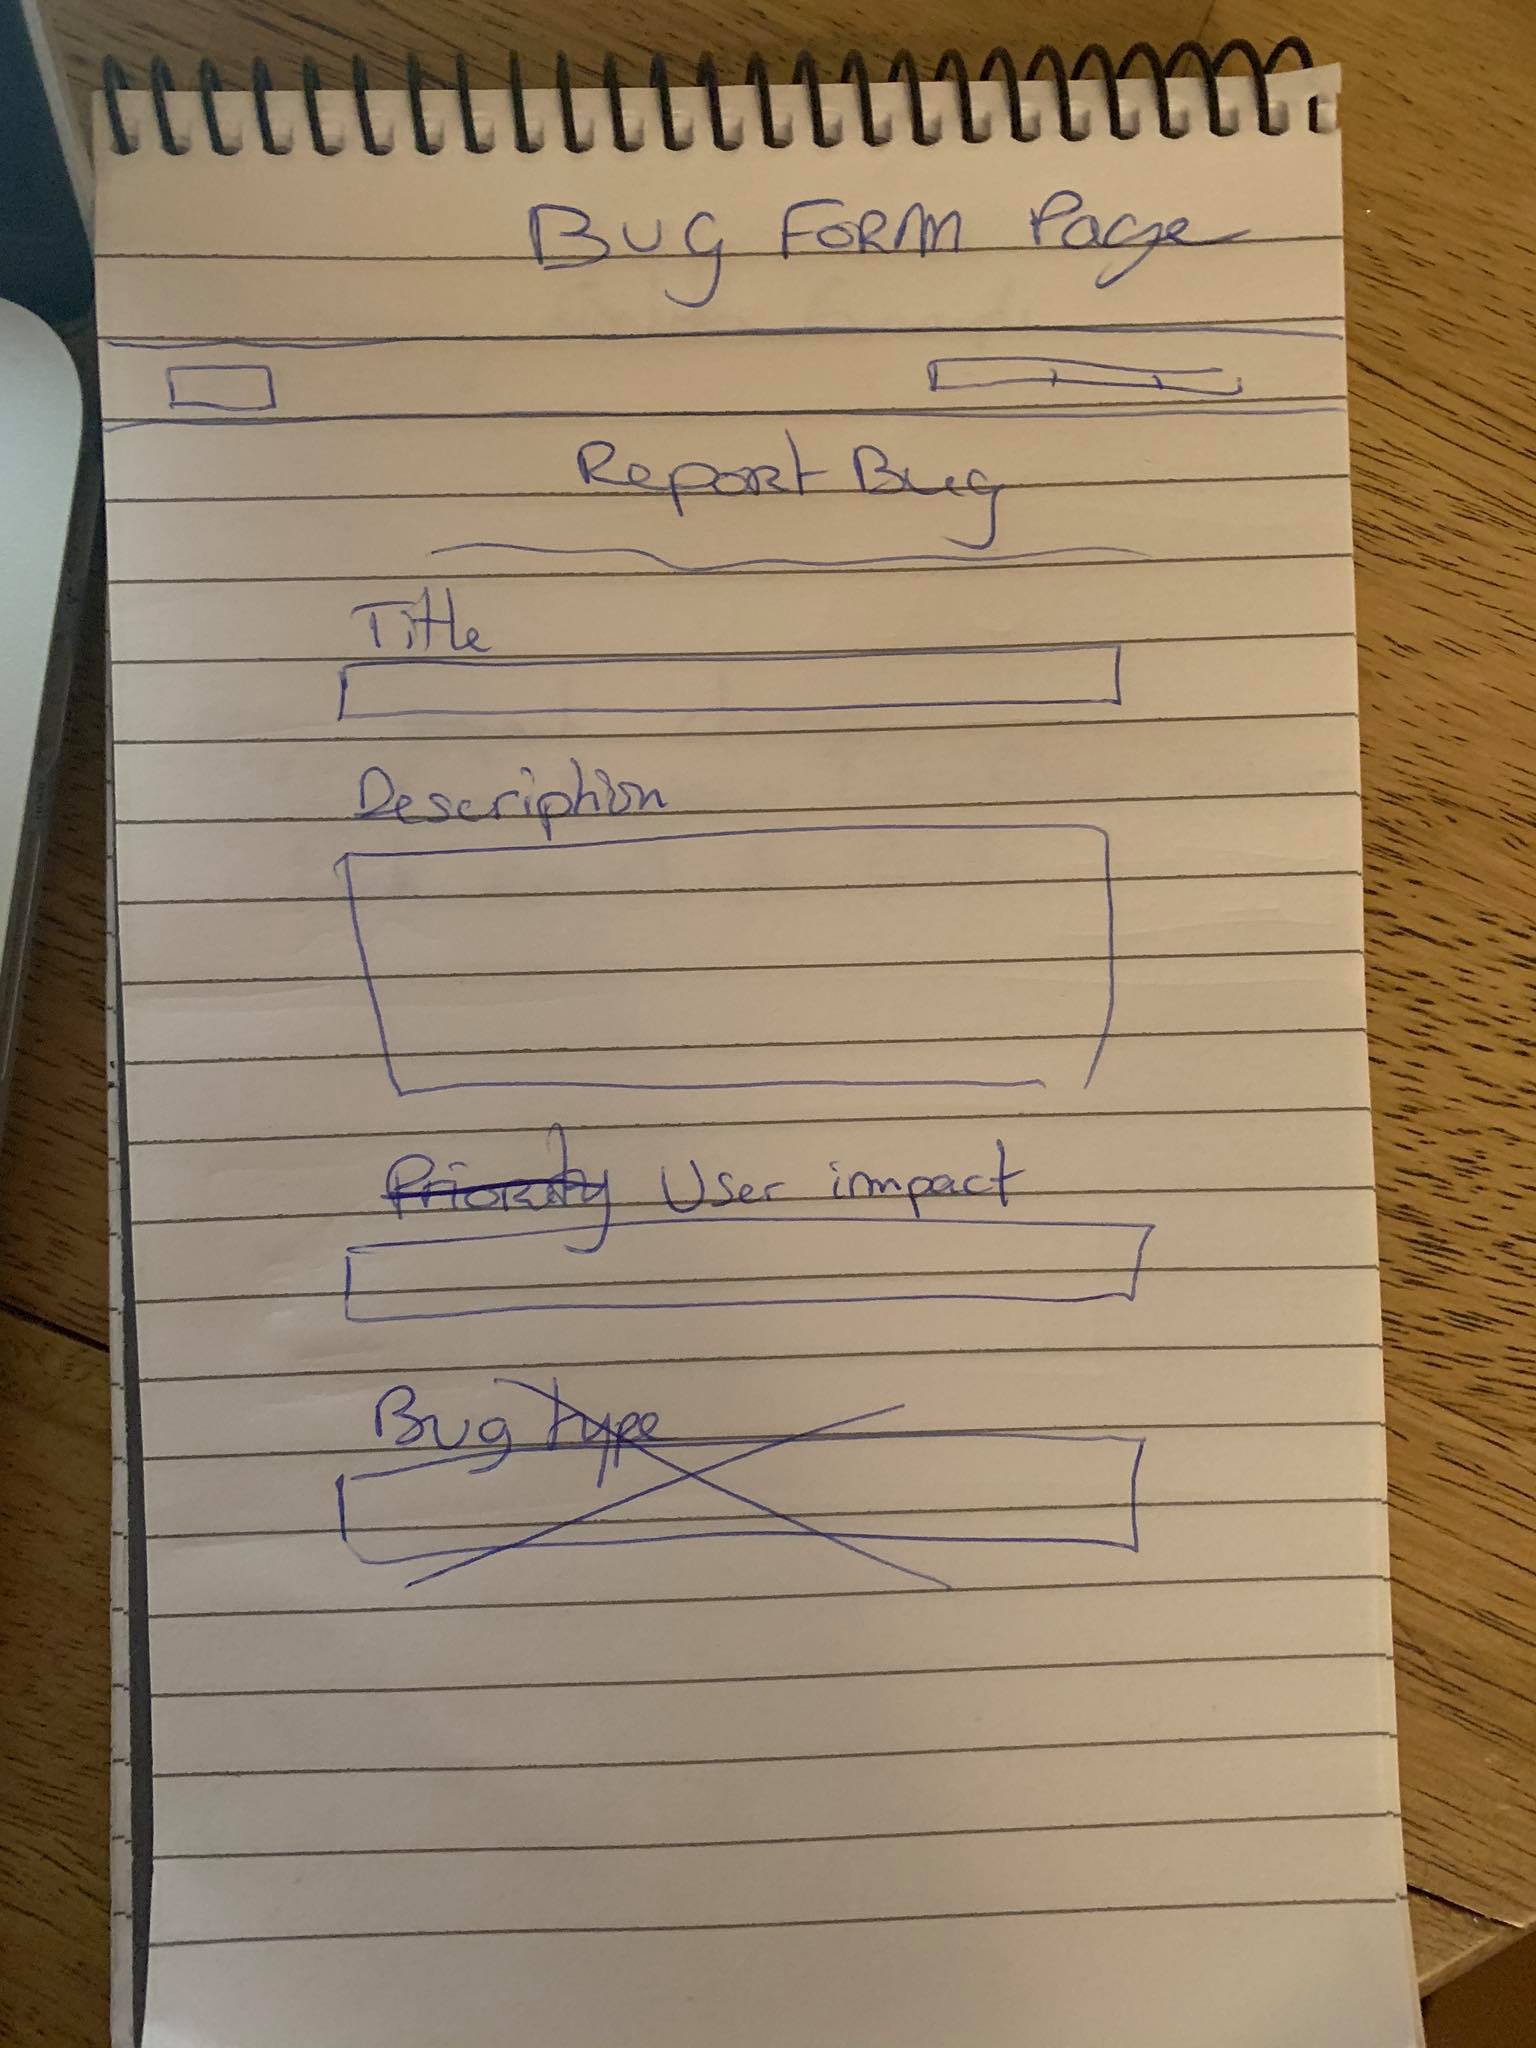 Bug Form Page
Report Bug
Title
Description
Priority User impact
Bug type